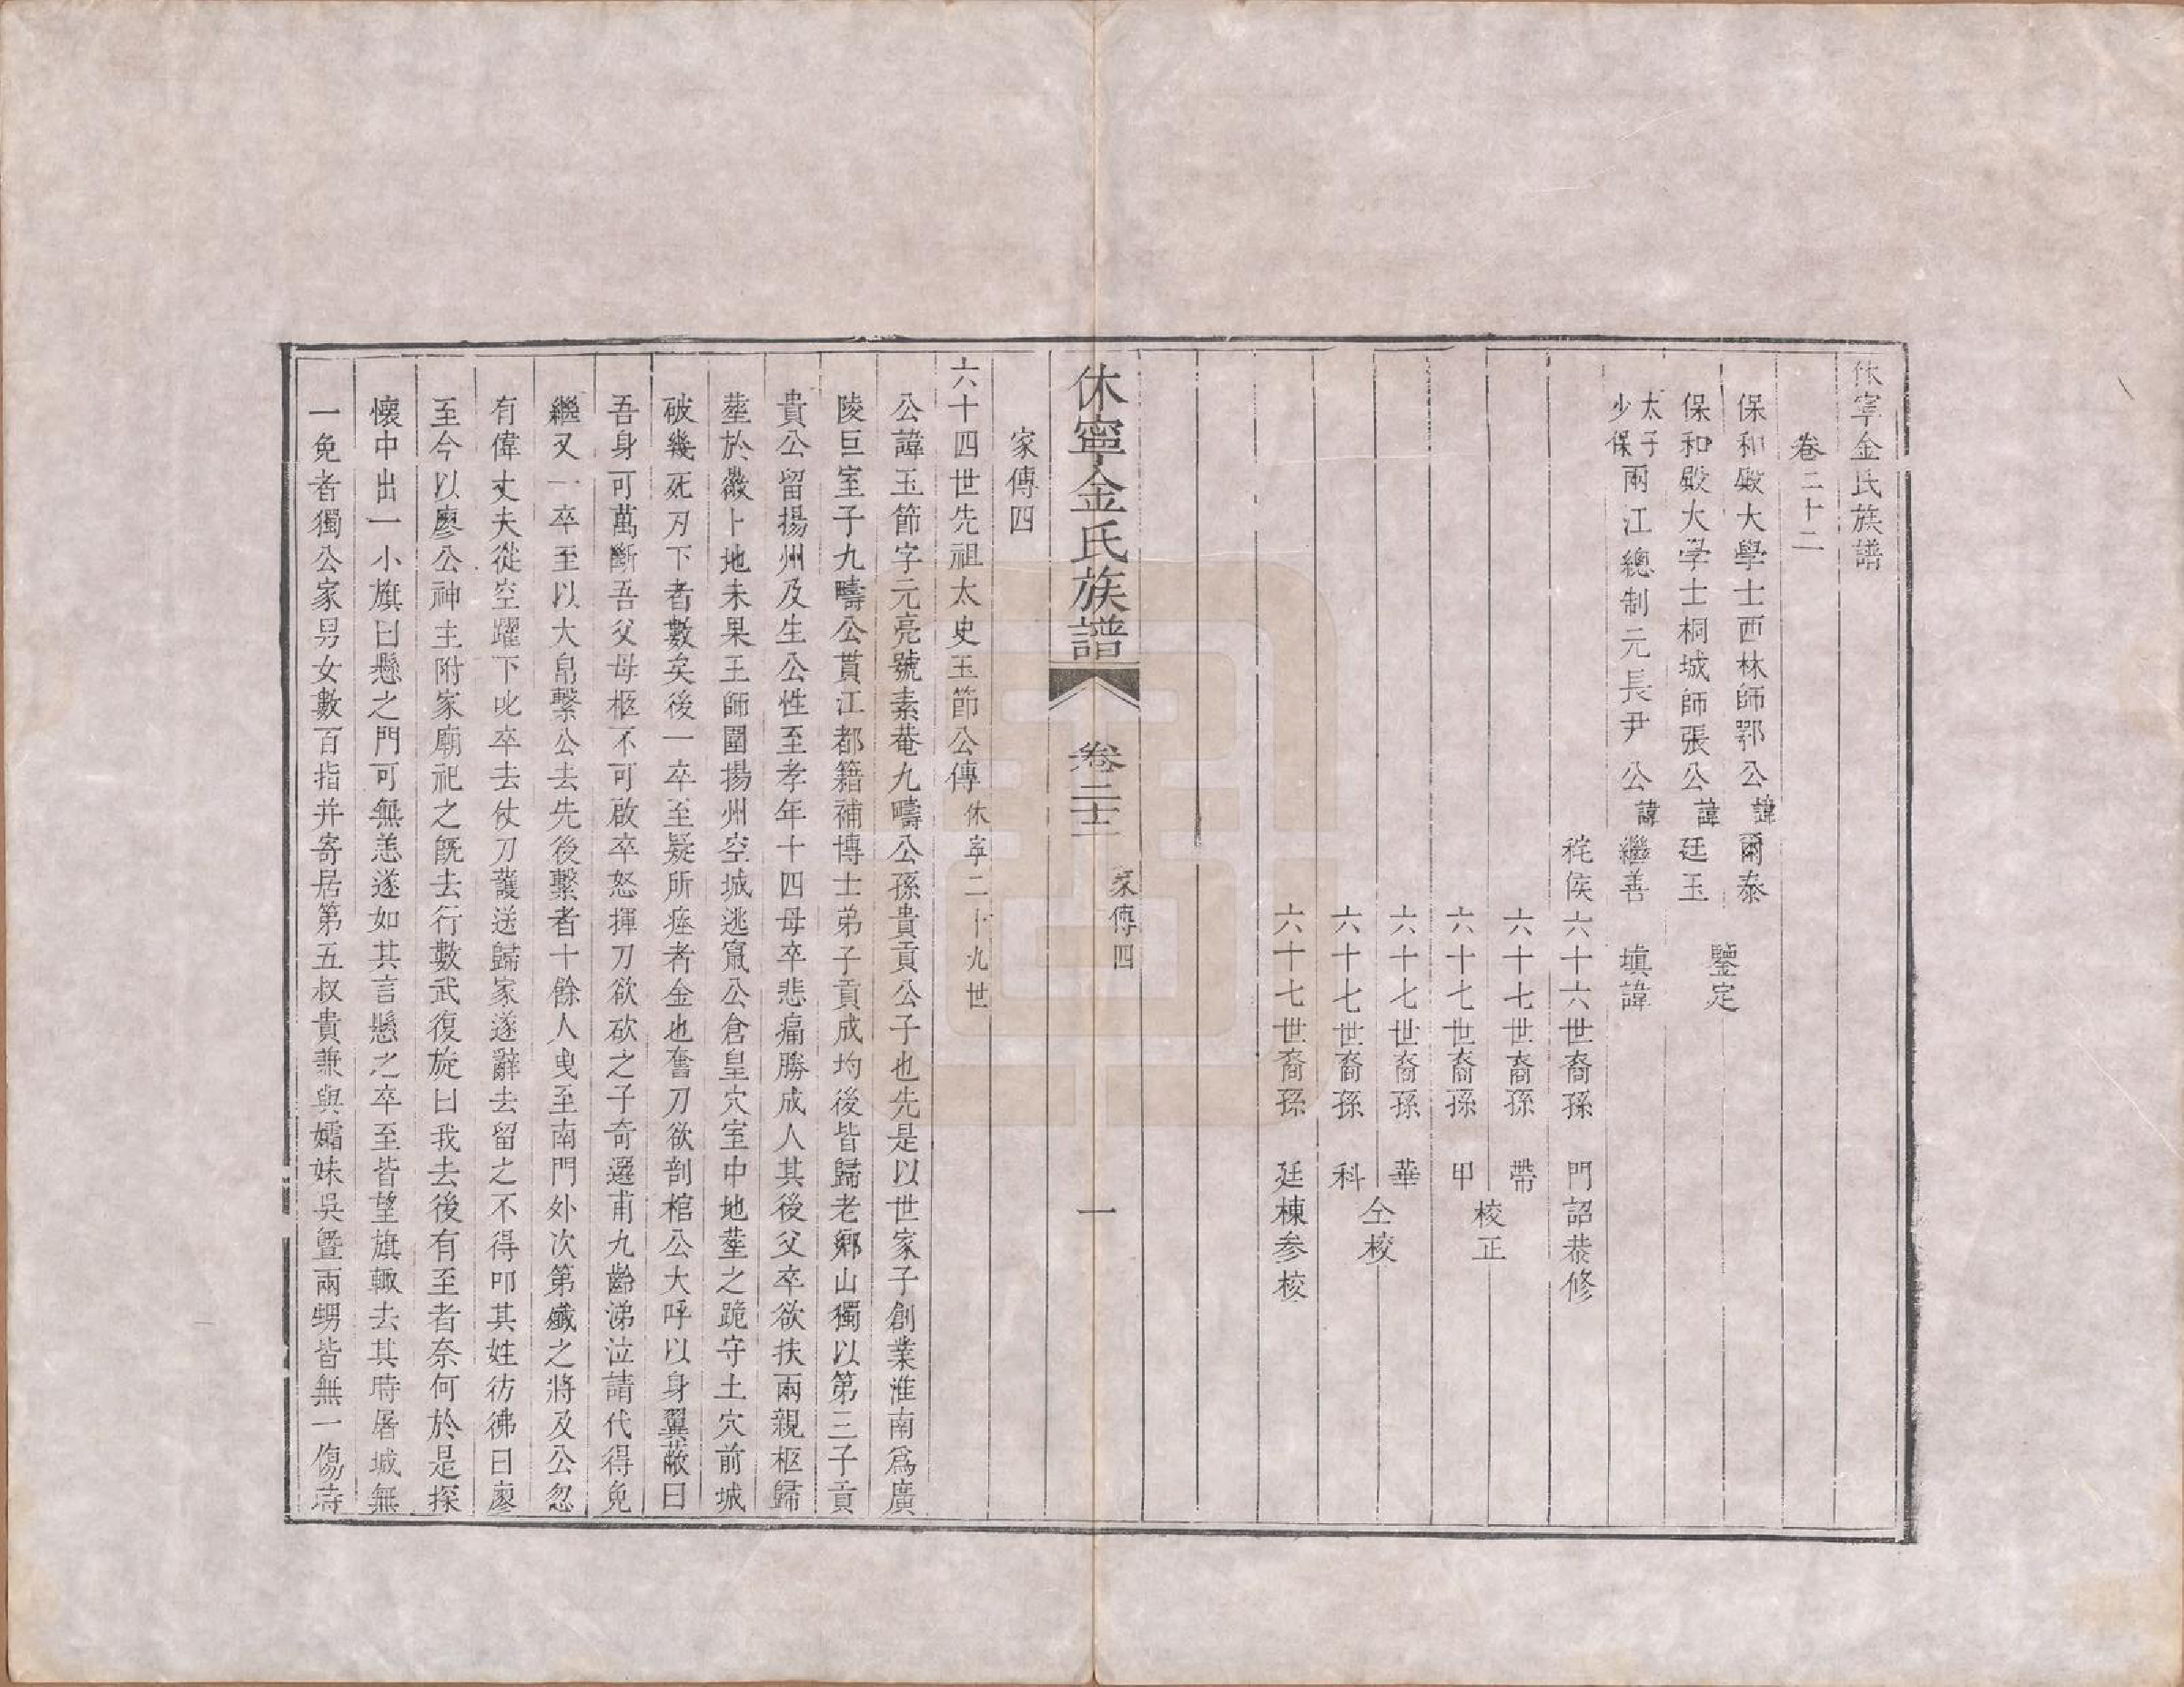 休寧金氏族譜
卷二十二
保和殿大學士西林師鄂公諱爾泰
鑒定
保和殿大学士桐城師張公諱廷玉
太子少保兩江總制元長尹公諱繼善 填諱
秺侯六十六世裔孫 門詔恭修
六十七世裔孫 帶
校正
六十七世裔孫 甲
六十七世裔孫 華
仝校
六十七世裔孫 科
六十七世裔孫 廷棟参校
休寧金氏族譜 卷二十二 家傳四 一
家傳四
六十四世先祖太史玉節公傳 休寧二十九世
公諱玉節字元亮號素菴九疇公孫貴貢公子也先是以世家子創業淮南爲廣
陵巨室子九疇公貫江都籍補博士弟子貢成均後皆歸老鄉山獨以第三子貢
貴公留揚州及生公公性至孝年十四母卒悲痛勝成人其後父卒欲扶兩親柩歸
塟於徽卜地未果王師圍揚州空城逃竄公倉皇穴室中地塟之跪守土穴前城
破幾死刃下者數矣後一卒至疑所瘞者金也奮刀欲剖棺公大呼以身翼蔽曰
吾身可萬斷吾父母柩不可啟卒怒揮刀欲砍之子奇選甫九齡涕泣請代得免
繼又一卒至以大帛繫公去先後繫者十餘人曳至南門外次第殲之將及公忽
有偉丈夫從空躍下叱卒去仗刀護送歸家遂辭去留之不得叩其姓彷彿曰廖
至今以廖公神主附家廟祀之既去行數武復旋曰我去後有至者奈何於是探
懷中出一小旗曰懸之門可無恙遂如其言懸之卒至皆望旗輙去其時屠城無
一免者獨公家男女數百指并寄居第五叔貴兼與孀妹吳曁兩甥皆無一傷時